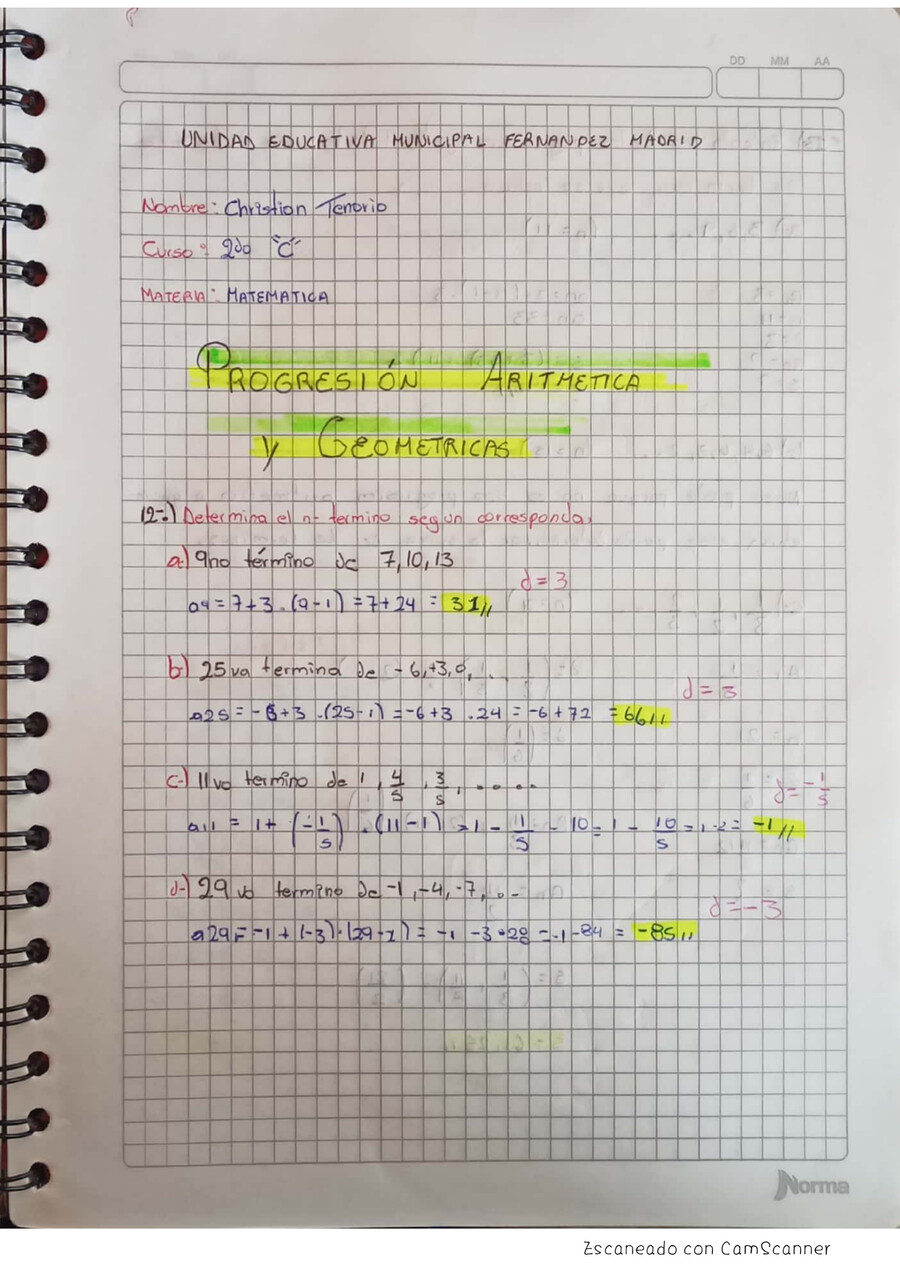 DD MM AA
UNIDAD EDUCATIVA MUNICIPAL FERNANDEZ MADRID
Nombre: Christian Tenorio
Curso: 2do "C"
MATERIA: MATEMATICA
PROGRESIÓN ARITMETICA
y GEOMETRICAS
12-) Determina el n- termino segun corresponda.
a) 9no término de 7, 10, 13
d = 3
a9 = 7+3 . (9-1) = 7+24 = 31//
b) 25va termina de -6,+3,0, . . .
d = 3
a25 = -6+3 .(25-1) = -6+3 .24 = -6+72 = 66//
c-) 11vo termino de 1, 4/5, 3/5, . . . .
d = -1/5
a11 = 1+ (-1/5) . (11-1) = 1 - 11/5 - 10 = 1 - 10/5 = 1-2 = -1//
d-) 29vo termino de -1, -4, -7, . -
d = -3
a29 = -1 + (-3) . (29-1) = -1 -3 . 28 = -1-84 = -85//
Norma
Escaneado con CamScanner